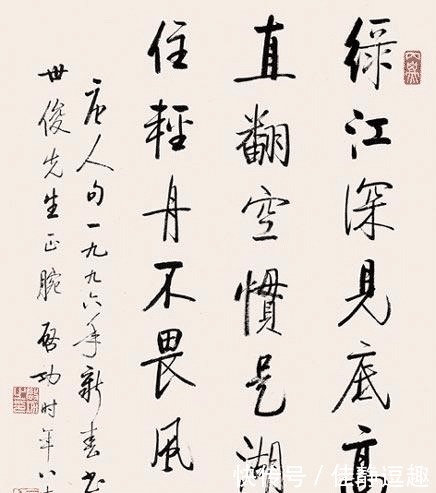 綠江深見底高
直翻空慣是湖
住輕舟不畏風
唐人句一九九六年新春書
世俊先生正腕 啟功時年八十
快传号 / 佳静逗趣